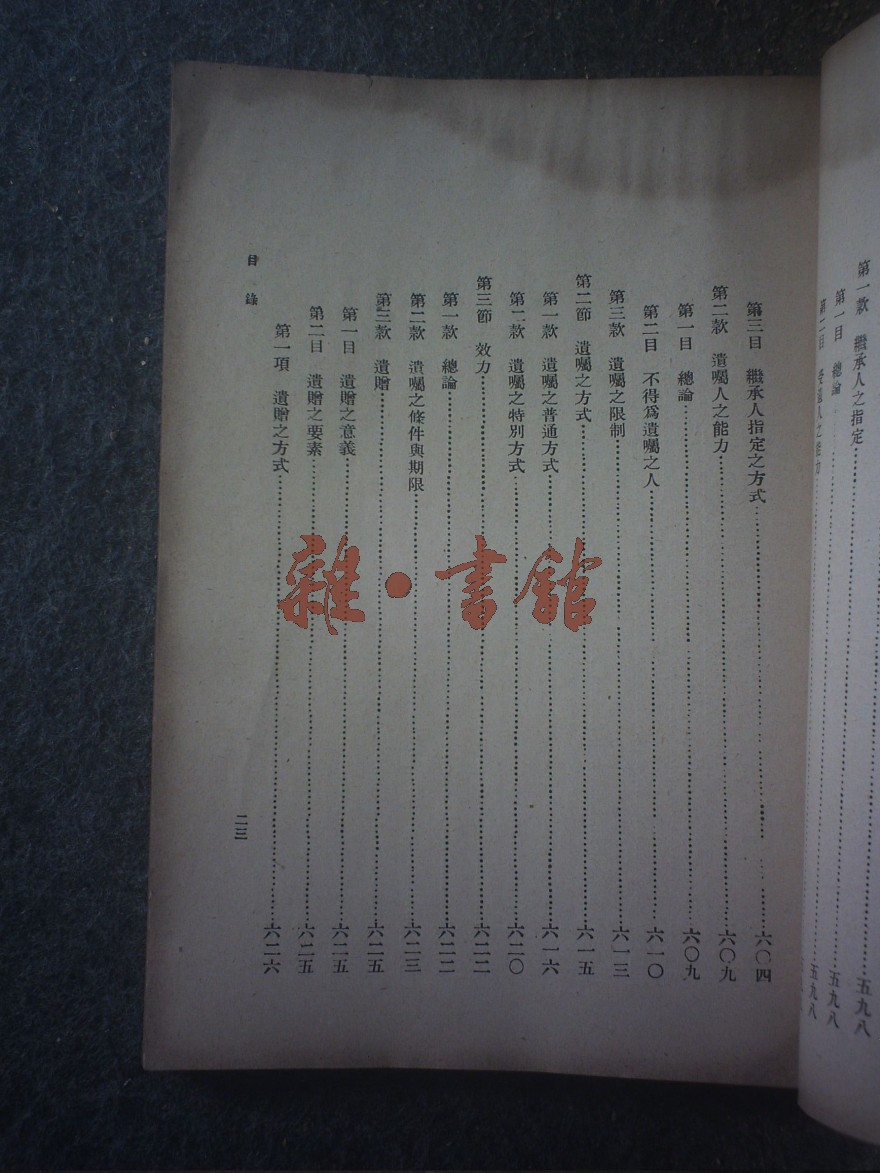 第一款 繼承人之指定……五九八
第一目 總論……五九八
第二目 人之能力……五九八
第三目 繼承人指定之方式……六〇四
第二款 遺囑人之能力……六〇九
第一目 總論……六〇九
第二目 不得爲遺囑之人……六一〇
第三款 遺囑之限制……六一三
第二節 遺囑之方式……六一五
第一款 遺囑之普通方式……六一六
第二款 遺囑之特別方式……六二〇
第三節 效力……六二二
第一款 總論……六二二
第二款 遺囑之條件與期限……六二三
第三款 遺贈……六二五
第一目 遺贈之意義……六二五
第二目 遺贈之要素……六二五
第一項 遺贈之方式……六二六
目錄
二三
雜·書館